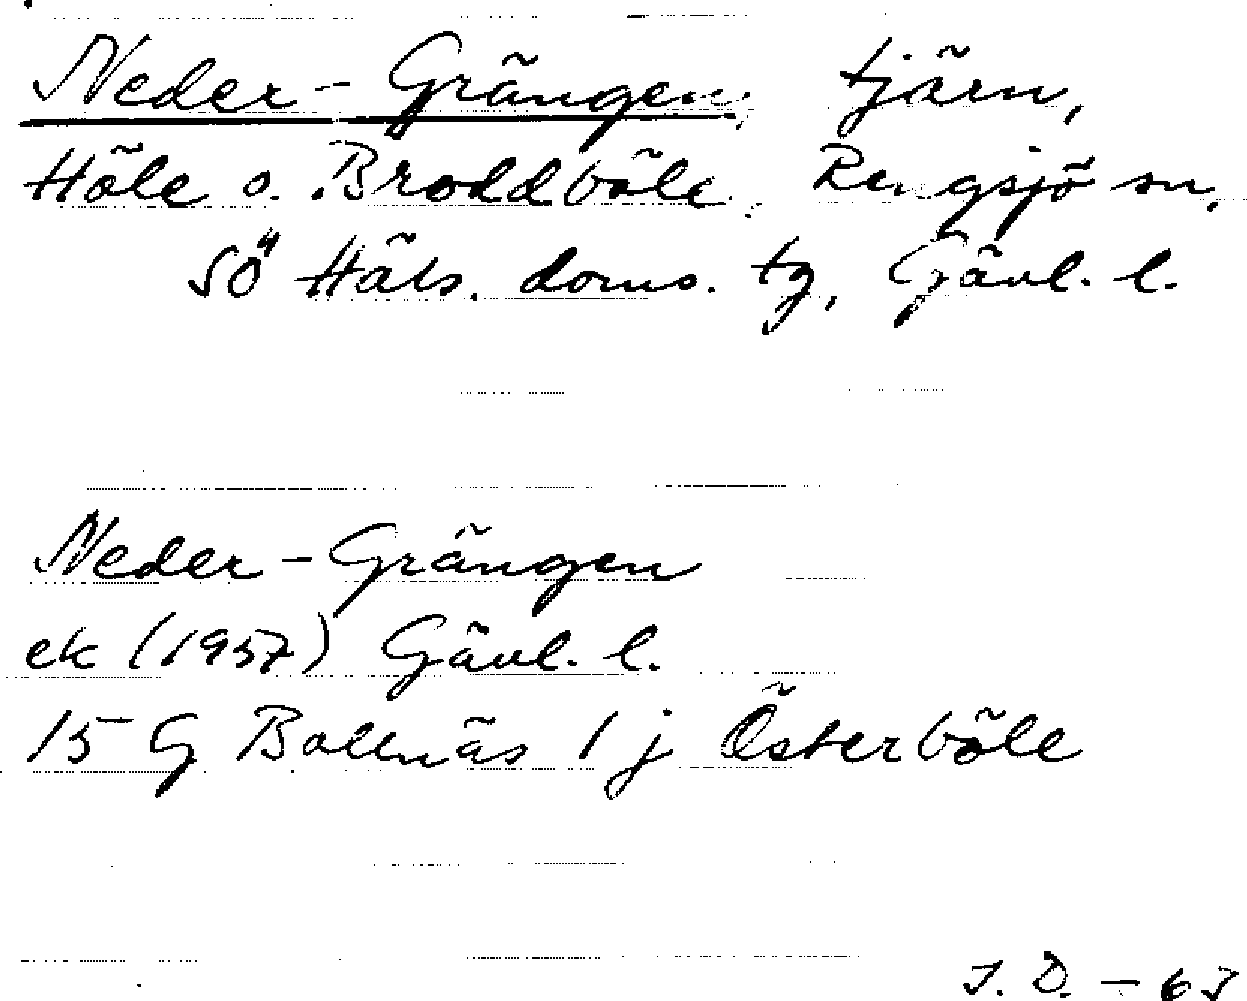 Neder-Grängen, tjärn,
Höle o. Broddböle, Rengsjö sn,
SÖ Häls. doms. tg, Gävl. l.
Neder-Grängen
ek (1957) Gävl. l.
15 G Bollnäs 1 j Österböle